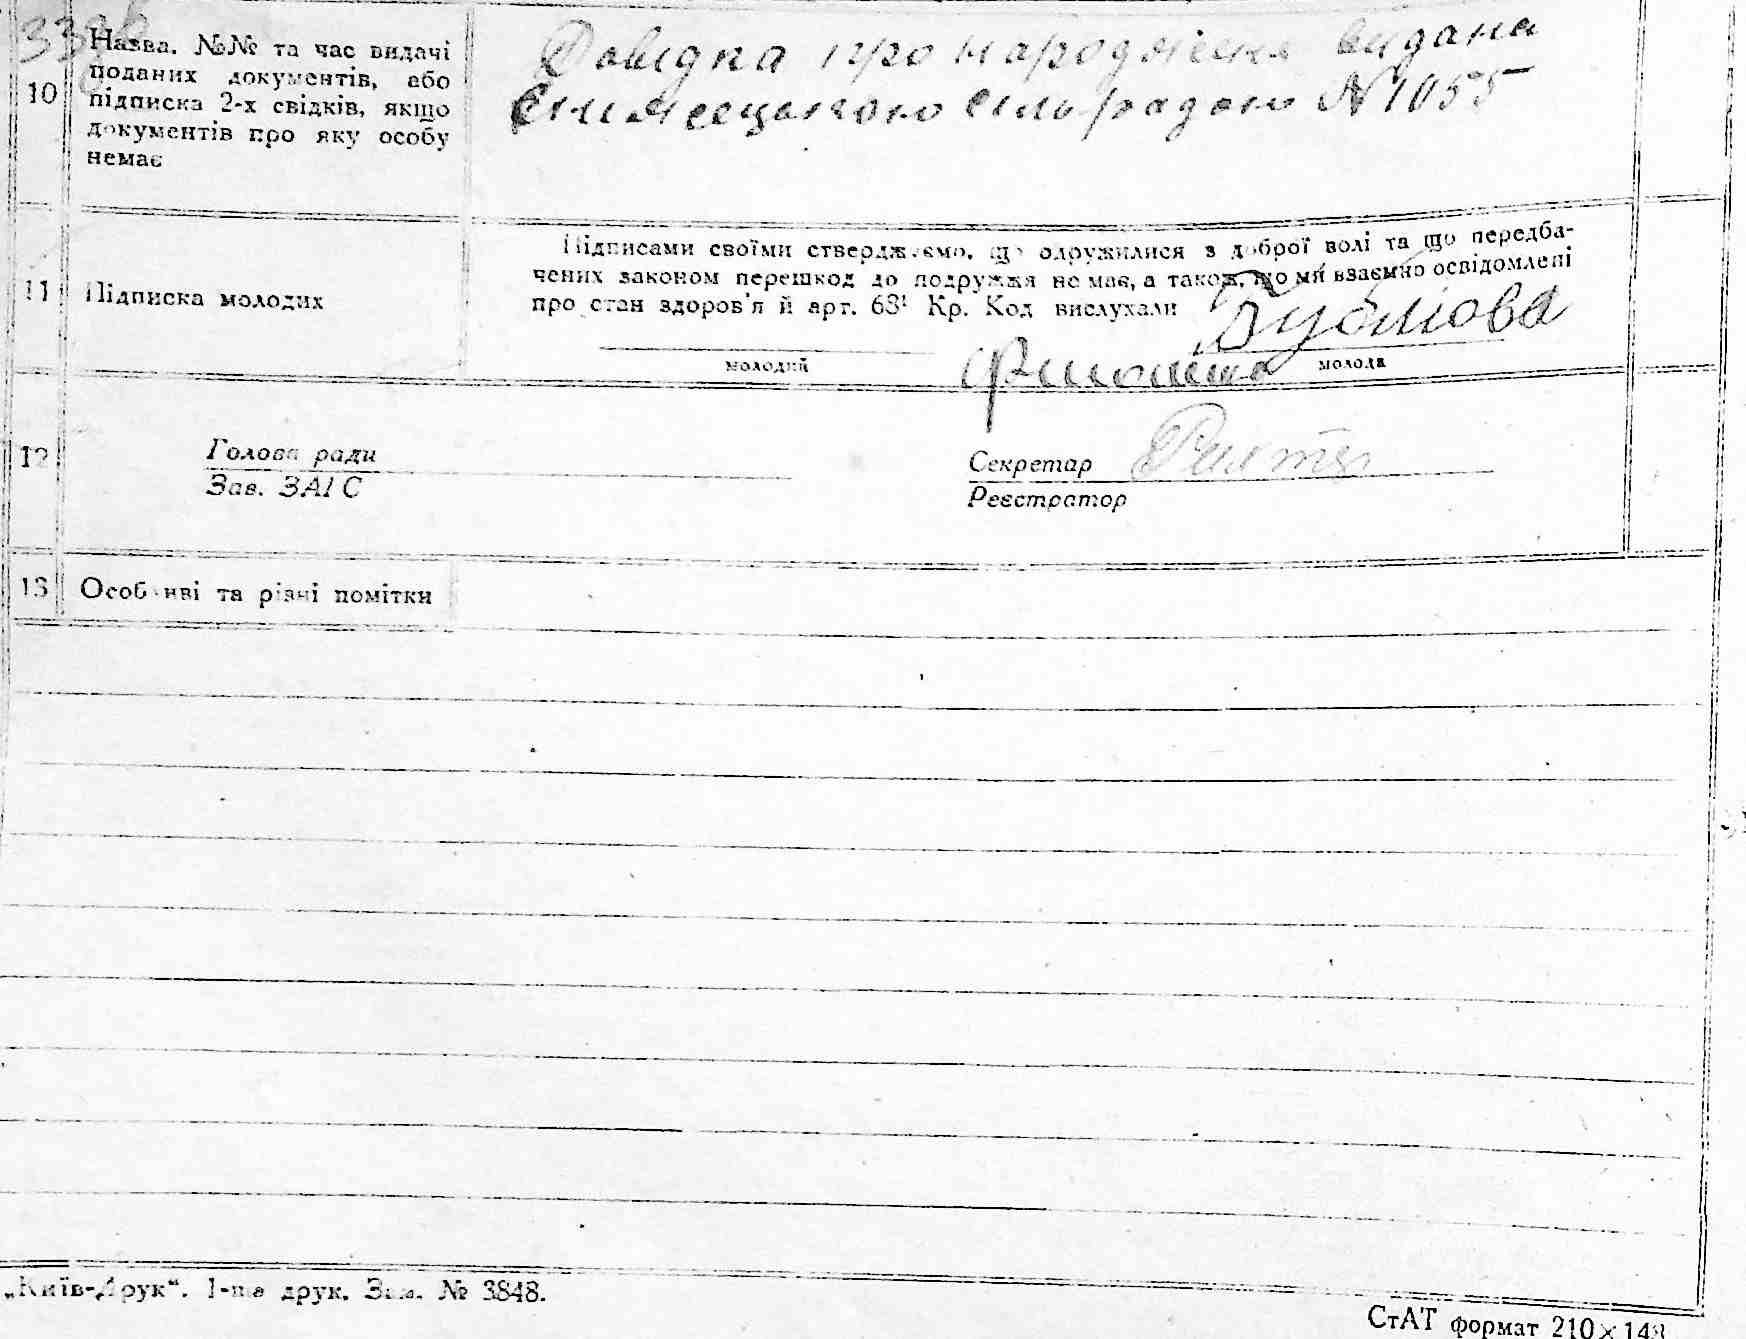 339
10
Назва. №№ та час видачі
поданих документів, або
підписка 2-х свідків, якщо
документів про яку особу
немає
Довідка про народження видана
сільрадою N 1055
11
Підписка молодих
Підписами своїми стверджуємо, що одружилися з доброї волі та що передба-
чених законом перешкод до подружжя не має, а також, що ми взаємно освідомлені
про стан здоров'я й арт. 63¹ Кр. Код вислухали
молодий
молода
12
Голова ради
Зав. ЗАГС
Секретар
Реєстратор
13
Особливі та різні помітки
„Київ-Друк“. 1-ша друк. Зам. № 3848.
СтАТ формат 210×148